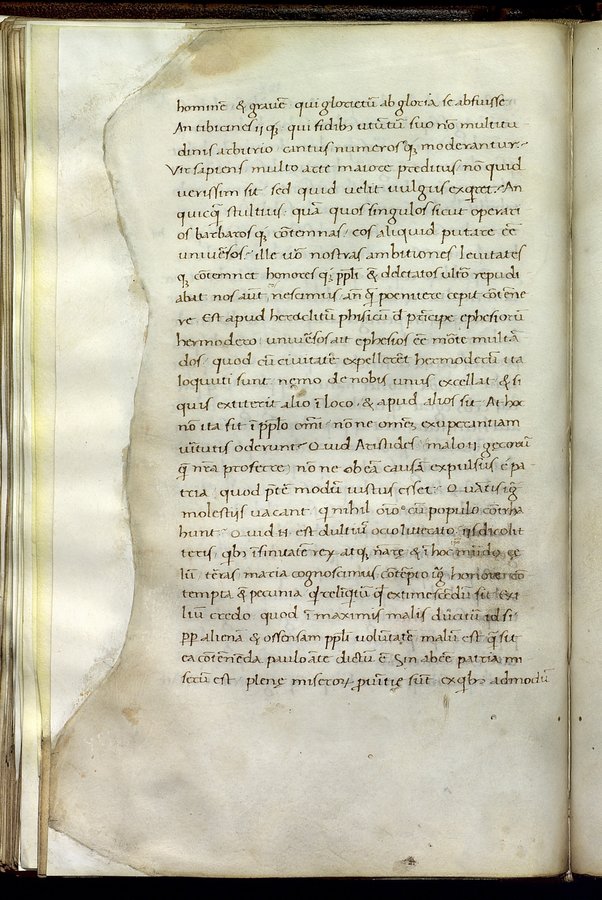 hominē & gravē qui glorietur ab gloria se abfuisse
An tibicines iiq; qui fidib; utūtur suo nō multitu
dinis arbitrio cantus numerosq; moderantur
Vir sapiens multo arte maiore preditus nō quid
verissim sit sed quid velit vulgus exqret An
quicq̄ stultius quā quos singulos sicut operari
os barbarosq; cōtemnas eos aliquid putare eē
univ̄sos ille v̄o nostras ambitiones levitates
q; cōtemnet honoresq; ppli & delatos ultro repudi
abit nos aūt nescimus an q̄ poenitere cepit cōtēne
re Est apud heraclitū phisicū d prīcipe ephesiorū
hermodoro univ̄sos ait ephesios eē morte multā
dos quod cū civitate expellerēt hermodorū ita
loquuti sunt nemo de nobis unus excellat & si
quis extiterit alio ī loco & apud alios sit At hoc
nō ita sit ī pplo omī nōne omēm exuperantiam
virtutis oderunt Quid Aristides malo .n. grecorū
q̄ nrā proferre nōne ob eā causā expulsus ē pa
tria quod pt̄e modū iustus esset Quātis igr̄
molestiis vacant q nihil oīo cū populo cōtrha
hunt Quid .n. est dulciu᷒ ocio litterato iis dico lit
teris qb; īfinitatē rerū atq; nāre & ī hoc mūdo ce
lū terras maria cognoscimus Cōtēpto igr̄ honore cō
tempta & pecunia qd reliquū qd extimescēdū sit Exi
liū credo quod ī maximis malis ducitur id si
pp alienā & offensam ppli volūtatē malū est q̄ sit
ea cōtēnēda paulo āte dictū ē Sin abēe patria mi
serū est plene miseror provītie sūt ex qb; admodū